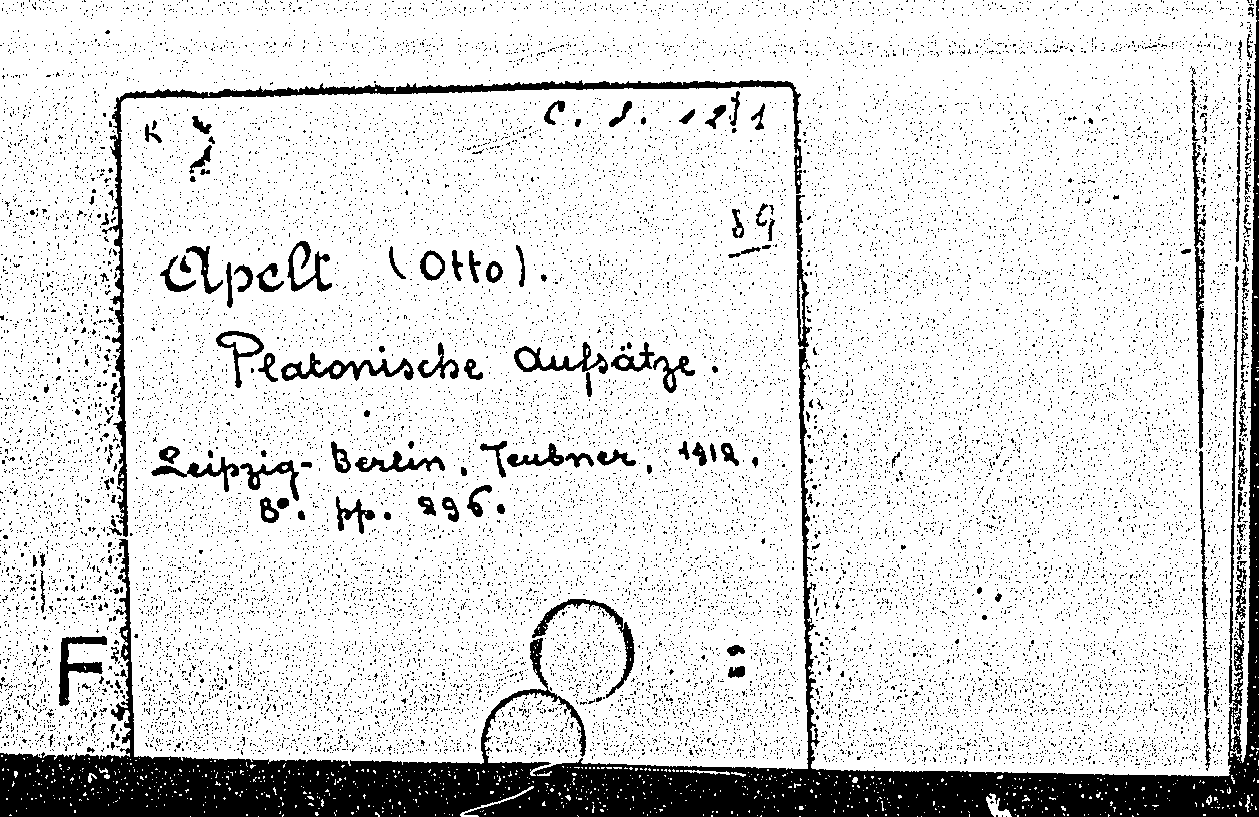 K
89
Apelt (Otto).
Platonische Aufsätze.
Leipzig-Berlin, Teubner, 1912.
8°. pp. 296.
F